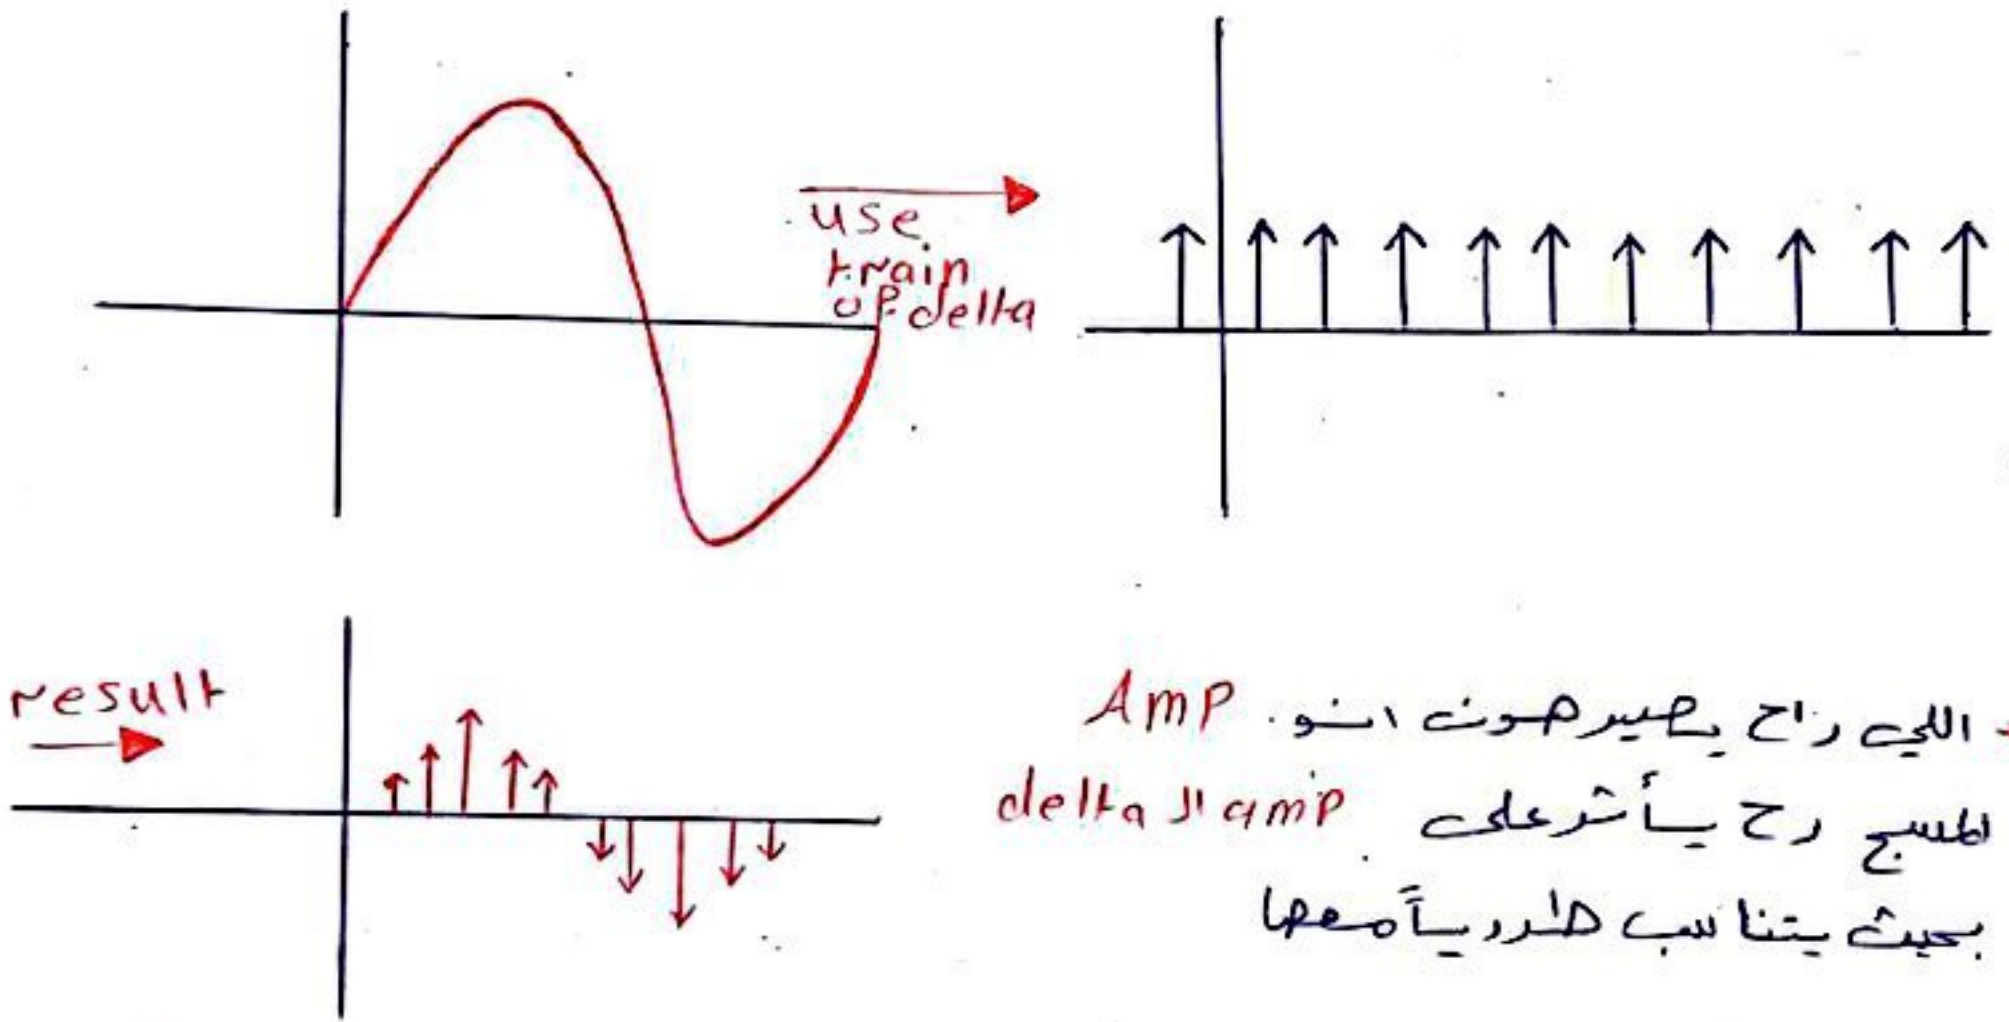 use
train
of delta
result
- اللي راح يصير هون انو Amp
المسج رح يأثر على amp ال delta
بحيث يتناسب طردياً معها